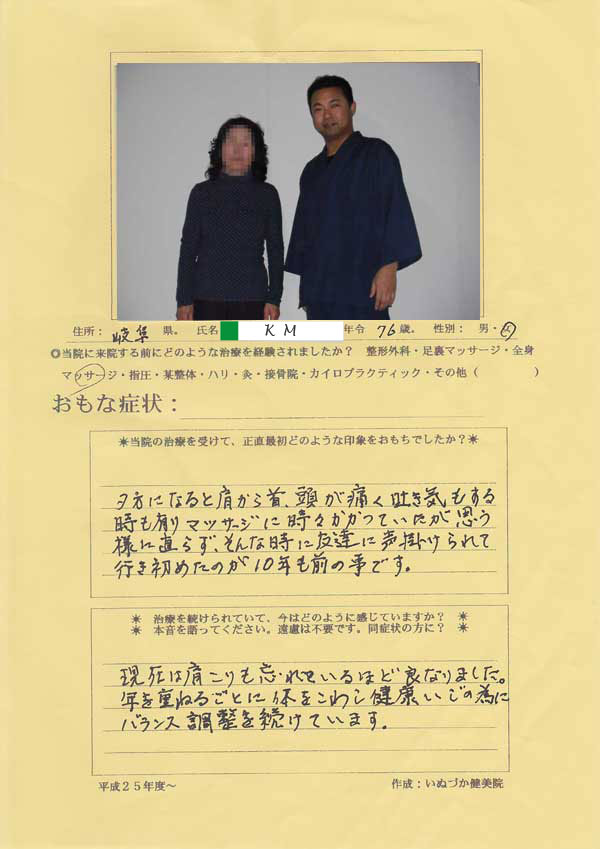 住所： 岐阜 県。 氏名 KM 年令 76 歳。 性別： 男・女
◎当院に来院する前にどのような治療を経験されましたか？ 整形外科・足裏マッサージ・全身
マッサージ・指圧・某整体・ハリ・灸・接骨院・カイロプラクティック・その他（ ）
おもな症状：
✴当院の治療を受けて、正直最初どのような印象をおもちでしたか？✴
夕方になると肩から首、頭が痛く吐き気もする
時も有りマッサージに時々かかっていたが思う
様に直らず、そんな時に友達に声掛けられて
行き初めたのが10年も前の事です。
✴ 治療を続けられていて、今はどのように感じていますか？ ✴
✴ 本音を語ってください。遠慮は不要です。同症状の方に？ ✴
現在は肩こりも忘れているほど良なりました。
年を重ねるごとに体をこわし健康いじの為に
バランス調整を続けています。
平成２５年度～
作成：いぬづか健美院